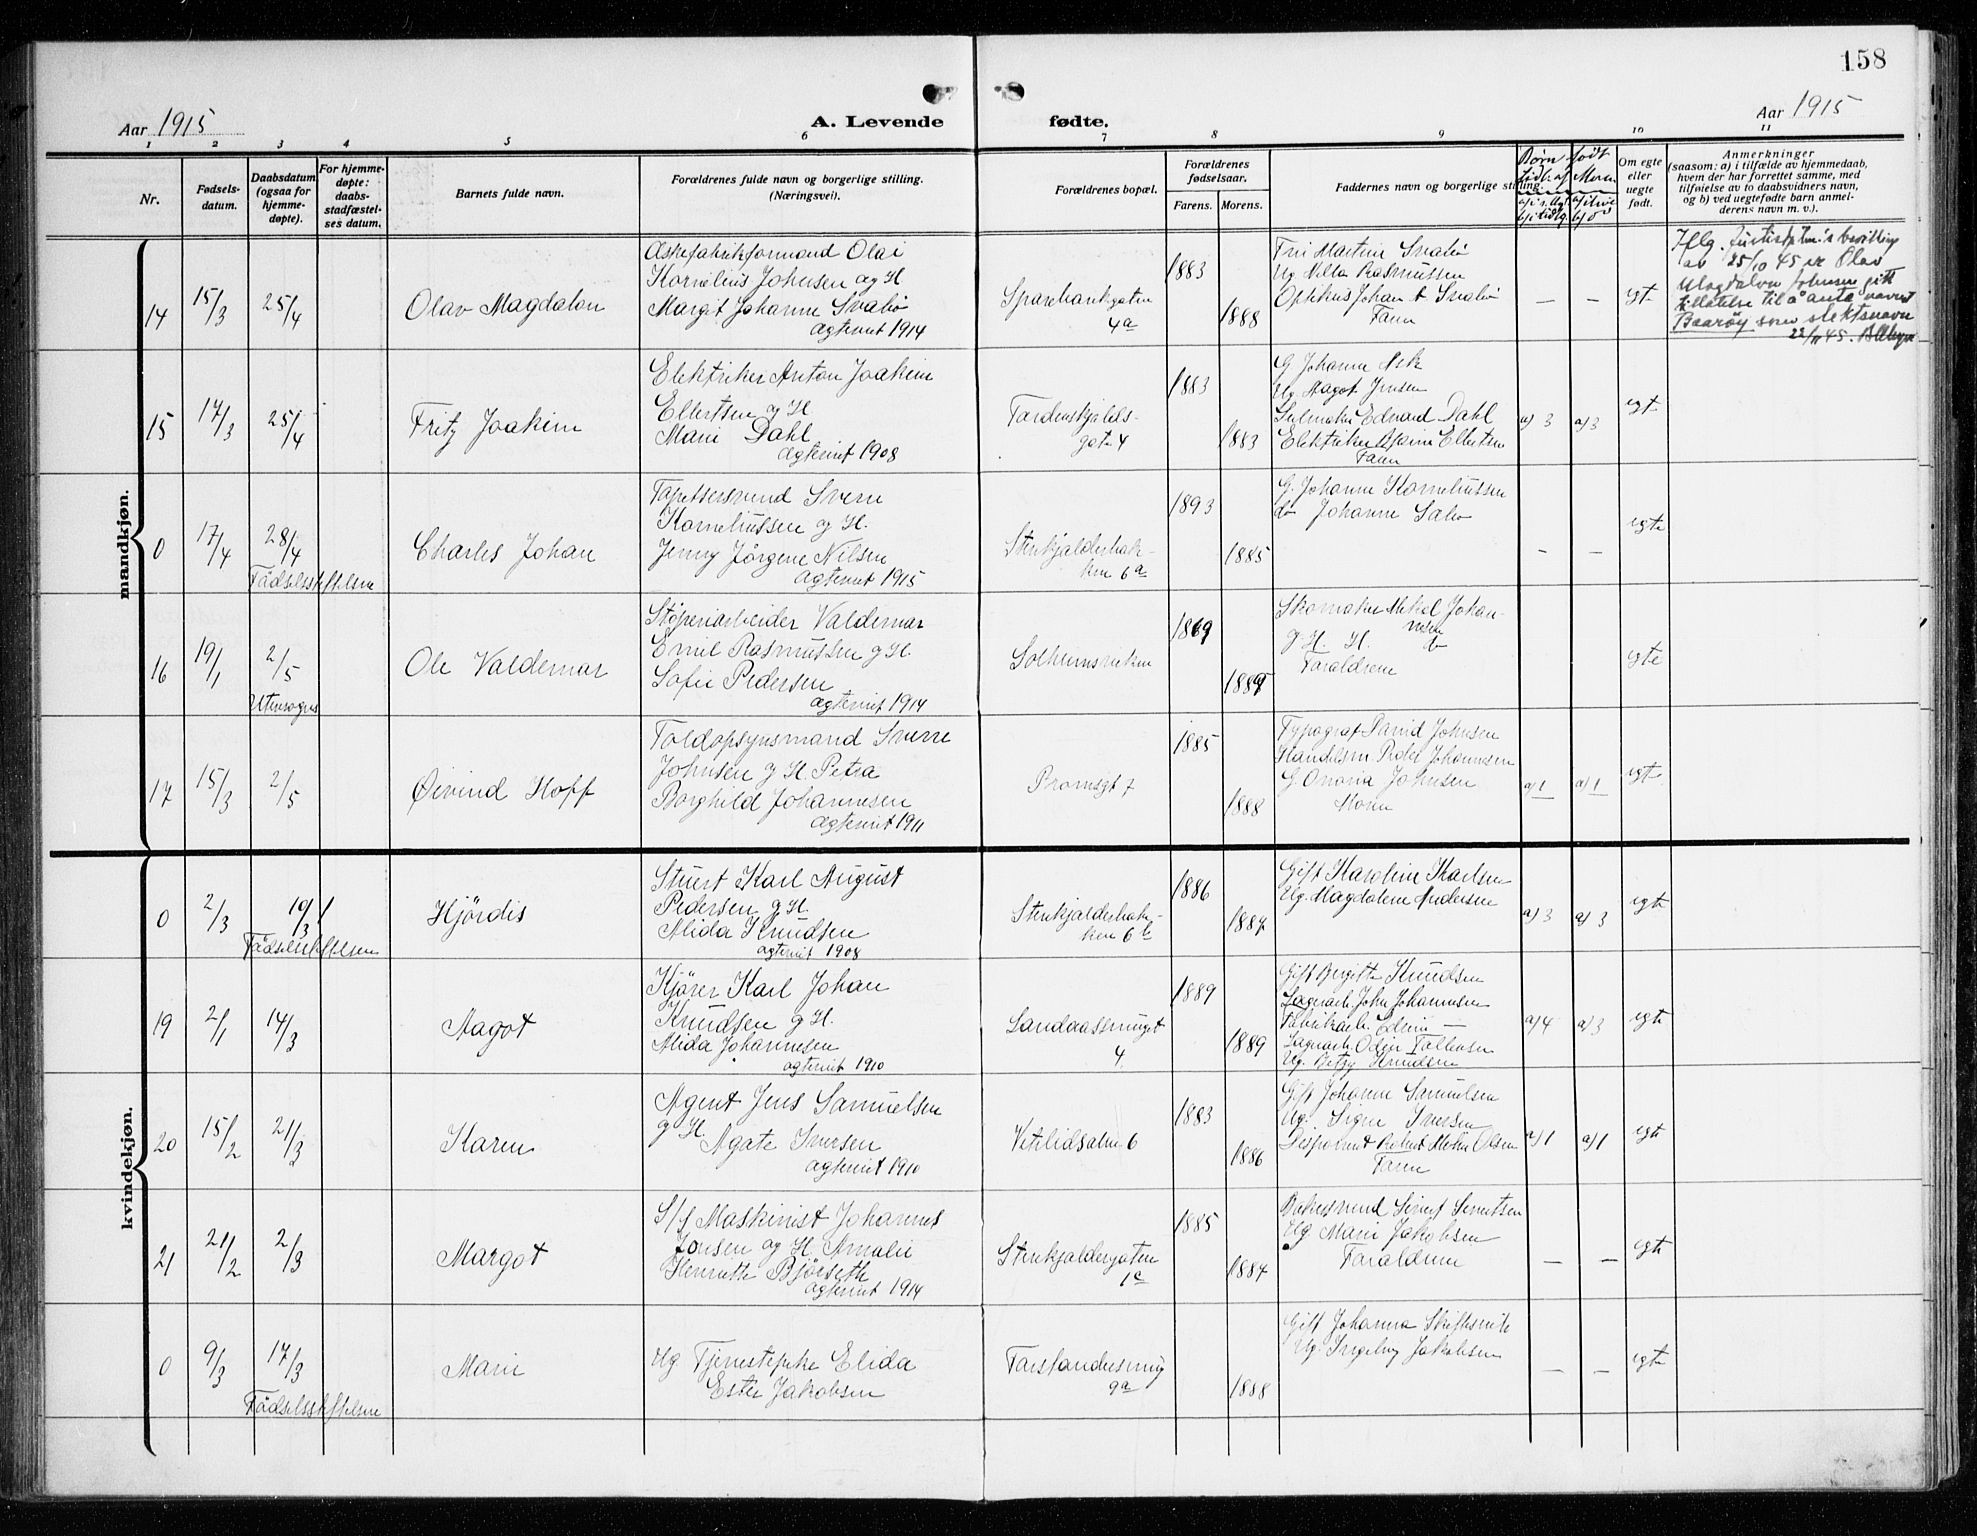 158
Aar 1915
A. Levende fødte.
Aar 1915
1 2 3 4 5 6 7 8 9 10 11
Nr.
Fødsels-
datum.
Daabsdatum
(ogsaa for
hjemme-
døpte).
For hjemme-
døpte:
daabs-
stadfæstel-
ses datum.
Barnets fulde navn.
Forældrenes fulde navn og borgerlige stilling.
(Næringsvei).
Forældrenes bopæl.
Forældrenes
fødselsaar.
Farens. Morens.
Faddernes navn og borgerlige stilling.
Børn født
Om egte
eller
uegte
født.
Anmerkninger
(saasom: a) i tilfælde av hjemmedaab,
hvem der har forrettet samme, med
tilføielse av to daabsvidners navn,
og b) ved uegtefødte barn anmel-
derens navn m. v.).
mandkjøn.
14
15/3
25/4
Olav Magdalon
Olai
Kornelius Johnsen og H
Margit Johanne Svabø
Egteviet 1914
Sparebankgaten
4a
1883
1888
Fru Martine Svabø
Ug Nilla Rasmussen
Optikus Johan Svabø
Faren
— —
egte
av 25/10 45 er Olav
Magdalon Johnsen gitt
tillatelse til å anta navnet
Baarøy som slektsnavn
22/11 45.
15
17/3
25/4
Fritz Joakim
Elektriker Anton Joakim
Ellertsen og H.
Marie Dahl
Egteviet 1908
Tordenskjolds-
gate 4
1883
1883
G Johanne Ask
Ug Magot Jensen
Edvard Dahl
Elektriker Bjarne Ellertsen
Faren
a) 3 a) 3
egte
0
17/4
28/4
Fødselsstiftelsen
Charles Johan
Tapetsersvend Sverre
Korneliussen og H.
Jenny Jørgene Nilsen
Egteviet 1915
Stenkjælderbak-
ken 6a
1893
1885
G. Johanne Korneliussen
do Johanne Sabø
— —
egte
16
19/1
2/5
Utensogns
Ole Valdemar
Støperiarbeider Valdemar
Emil Rasmussen og H.
Sofie Pedersen
Egteviet 1914
Solheimsviken
1889
Skomaker Mikal Johan-
nesen
g H. H. do
Forældrene
egte
17
15/3
2/5
Øivind Hoff
Toldopsynsmand Sverre
Johnsen og H. Petra
Borghild Johannesen
Egteviet 1911
Promsgt 7
1885
1888
Typograf David Johnsen
Handelsm Peder Johannesen
G. Onaria Johnsen
Moren
a) 1 a) 1
egte
kvindekjøn.
0
2/3
19/3
Fødselsstiftelsen
Hjördis
Stuert Karl August
Pedersen og H.
Alida Knudsen
Egteviet 1908
Stenkjælderbak-
ken 6b
1886
1887
Gift Karoline Karlsen
Ug. Magdalene Andersen
a) 3 a) 3
egte
19
2/1
14/3
Aagot
Kjører Karl Johan
Knudsen og H.
Alida Johannesen
Egteviet 1910
Landaassmuget
4
1889
1889
Gift Birgitte Knudsen
Lagerarb. John Johannesen
Fabrikarb. Edvin —
Lagerarb. Odin Tollevsen
Ug. Betzy Knudsen
a) 4 a) 3
egte
20
15/2
21/3
Karen
Agent Jens Samuelsen
og H. Agate Iversen
Egteviet 1910
Vetrlidsalm 6
1883
1886
Gift Johanne Samuelsen
Ug. Signe Iversen
Olsen
Faren
a) 1 a) 1
egte
21
21/2
2/3
Margot
S/S Maskinist Johannes
Jonsen og H. Amalie
Henriette Bjørseth
Egteviet 1914
Stenkjældergaten
1c
1885
1884
Bakersvend Sivert Sivertsen
Ug Marie Jakobsen
Forældrene
— —
egte
0
9/3
17/3
Fødselsstiftelsen
Marie
Ug Tjenestepike Elida
Ester Jakobsen
Forstandersmug
9a
1888
Gift Johanna Skiftesvik
Ug. Ingeborg Jakobsen
— —
egte